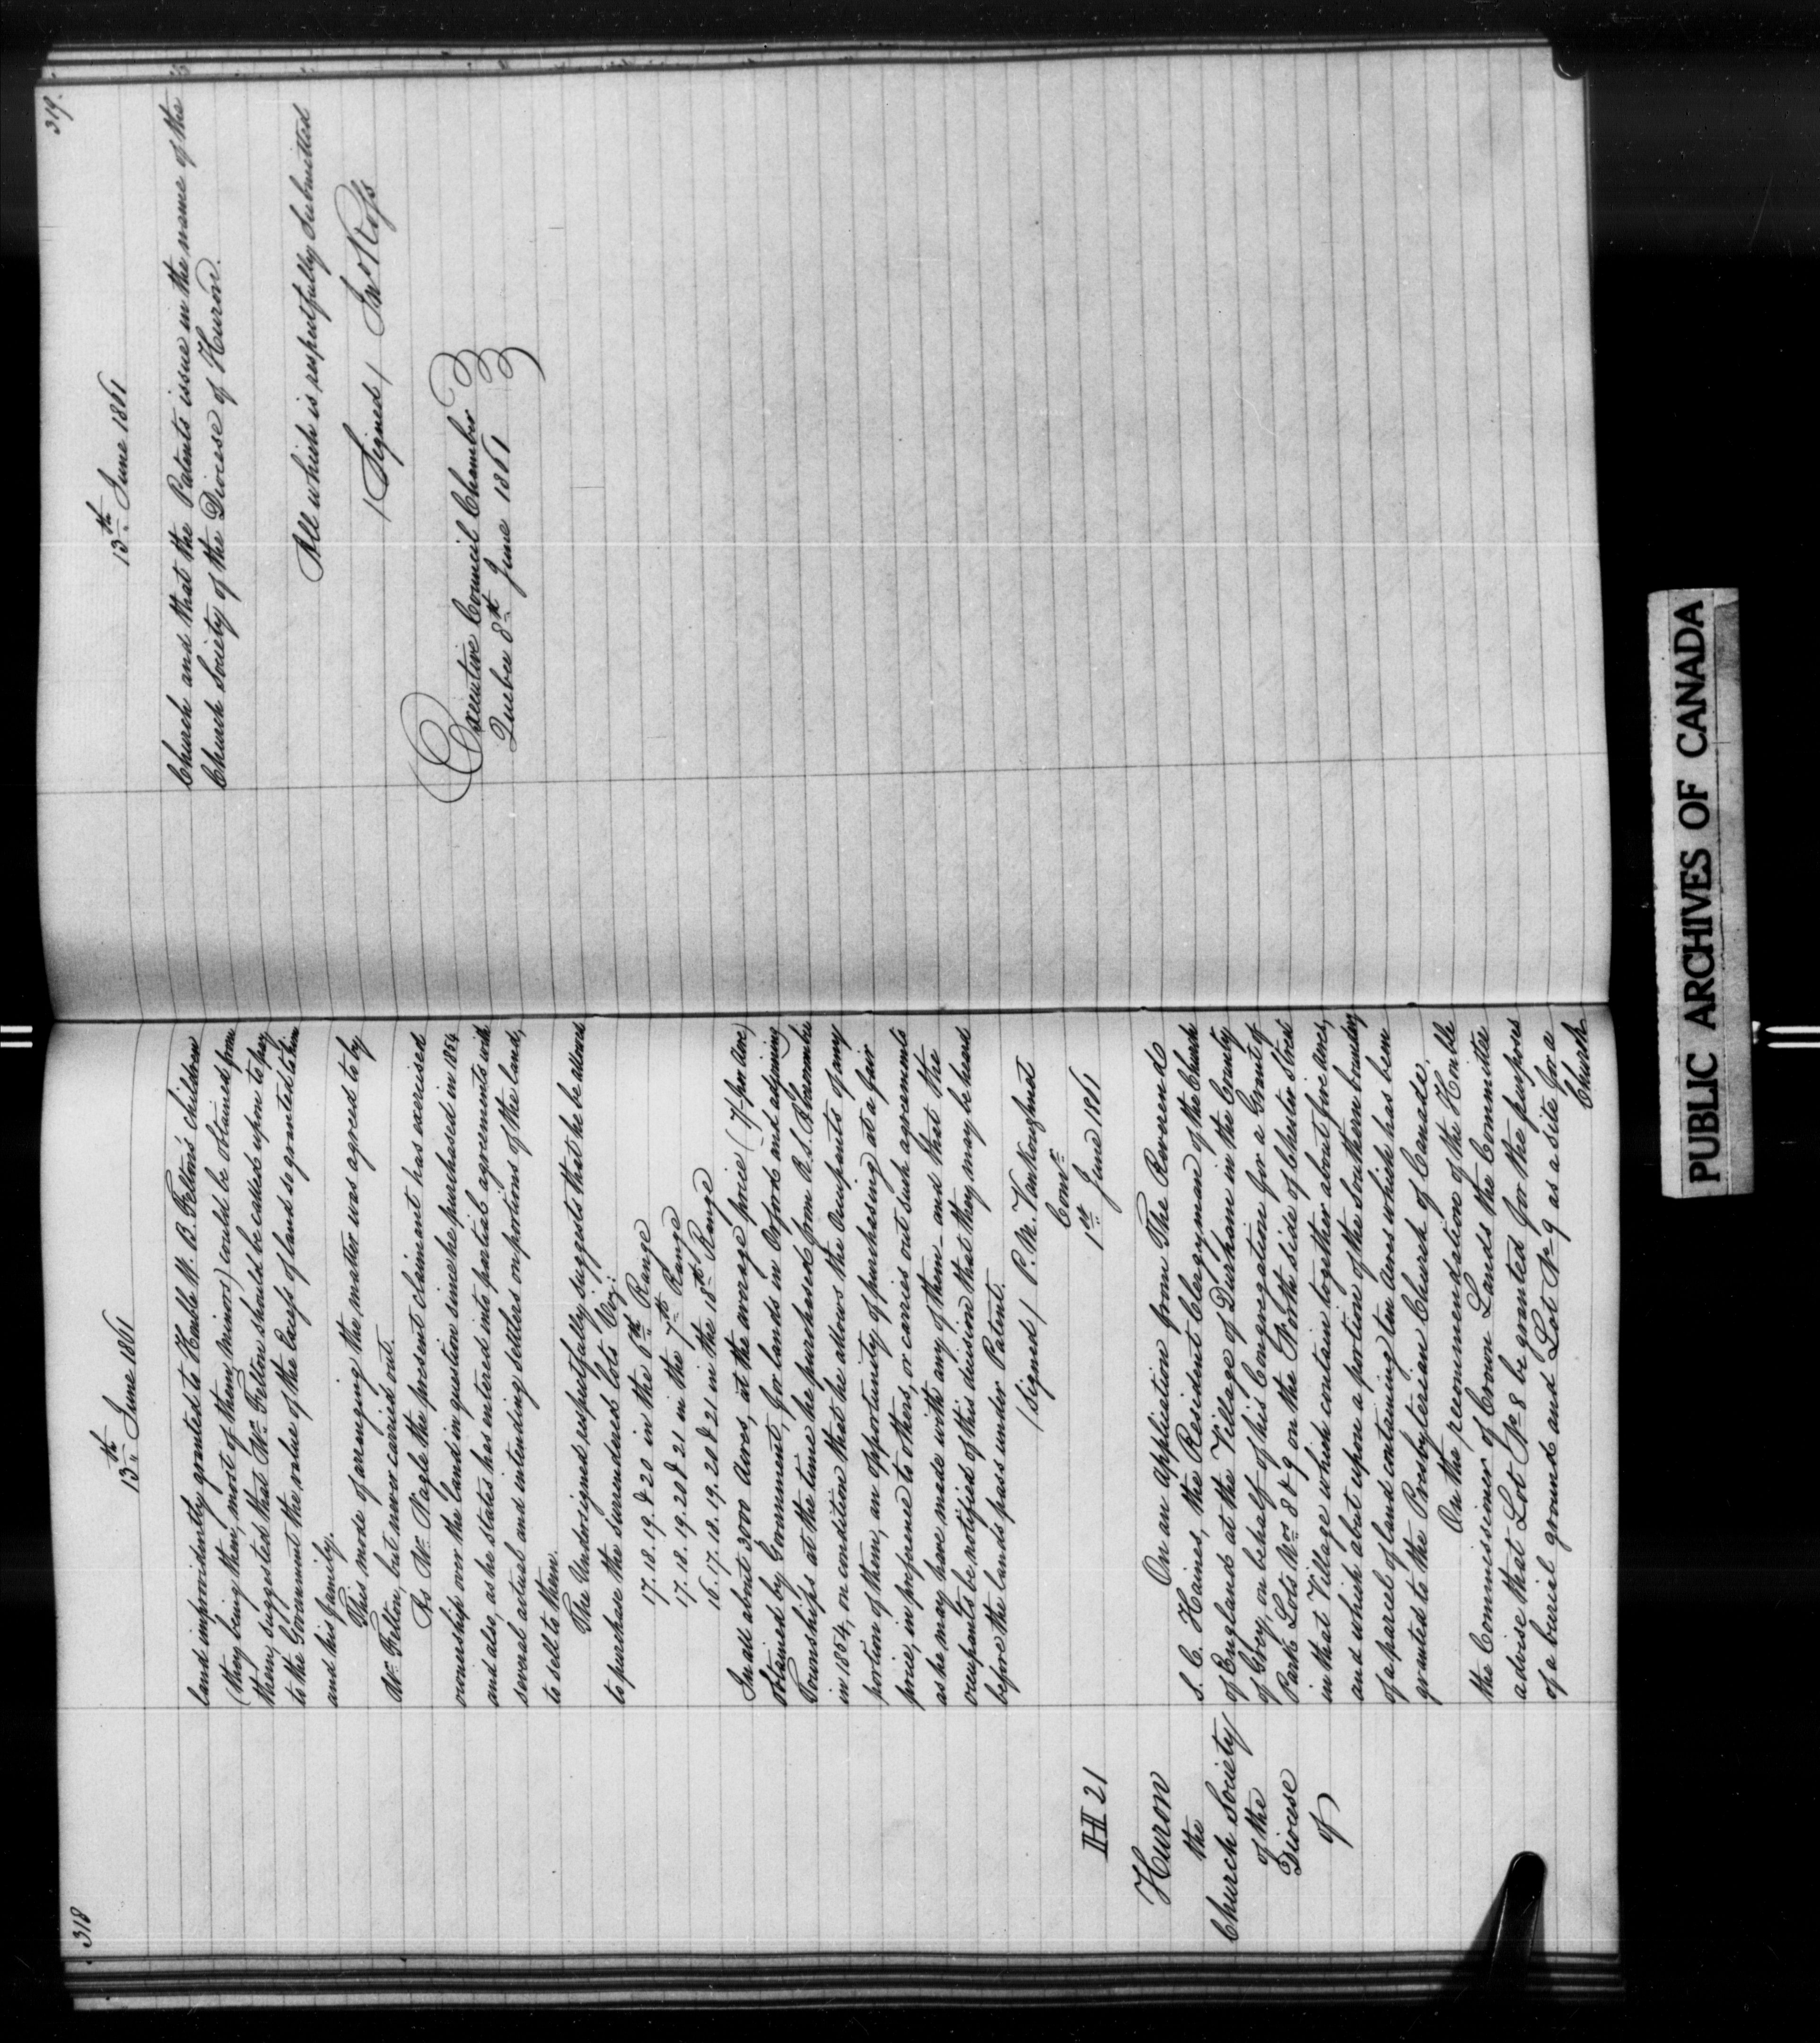 318
13th June 1861
land improvidently granted to Honble W. B. Felton's children
(they being then, most of them, minors) could be obtained from
them, suggested that Mr. Felton should be called upon to pay
to the Government the value of the Excess of land so granted to him
and his family.
This mode of arranging the matter was agreed to by
Mr. Felton, but never carried out.
As Mr. Nagle the present claimant has exercised
ownership over the land in question since he purchased in 1854
and also, as he states has entered into partial agreements with
several actual and intending settlers on portions of the land,
to sell to them.
The Undersigned respectfully suggests that he be allowed
to purchase the surrendered lots Viz:
17. 18. 19. & 20 in the 6th Range
17. 18. 19. 20 & 21 in the 7th Range
16. 17. 18. 19. 20 & 21 in the 18th Range
In all about 3000 Acres, at the average price ( 7/- per Acre)
obtained by Government, for lands in Orford and adjoining
Townships at the time he purchased from A. S. Abercrombie
in 1854, on condition that he allows the Occupants of any
portion of them, an opportunity of purchasing at a fair
price, in preference to others, or carries out such agreements
as he may have made with any of them - and that the
occupants be notified of this decision that they may be heard
before the lands pass under Patent.
(Signed) P. M. VanKoughnet
Comr.
1st June 1861
HH 21
Huron
the
Church Society
of the
Diocese
of
On an application from The Reverend
S. C. Haines, the Resident Clergyman of the Church
of England at the Village of Durham in the County
of Grey, on behalf of his Congregation for a Grant of
Park Lots Nos. 8 & 9 on the North side of Chester Street
in that Village which contain together about five acres,
and which abut upon a portion of the Southern boundary
of a parcel of land containing ten Acres which has been
granted to the Presbyterian Church of Canada.
On the recommendation of the Honble
the Commissioner of Crown Lands the Committee
advise that Lot No. 8 be granted for the purposes
of a burial ground and Lot No. 9 as a site for a
Church
319.
13th June 1861
Church and that the Patents issue in the name of the
Church Society of the Diocese of Huron.
All which is respectfully Submitted
(Signed) Jno Ross
Executive Council Chamber
Quebec 8th June 1861
PUBLIC ARCHIVES OF CANADA